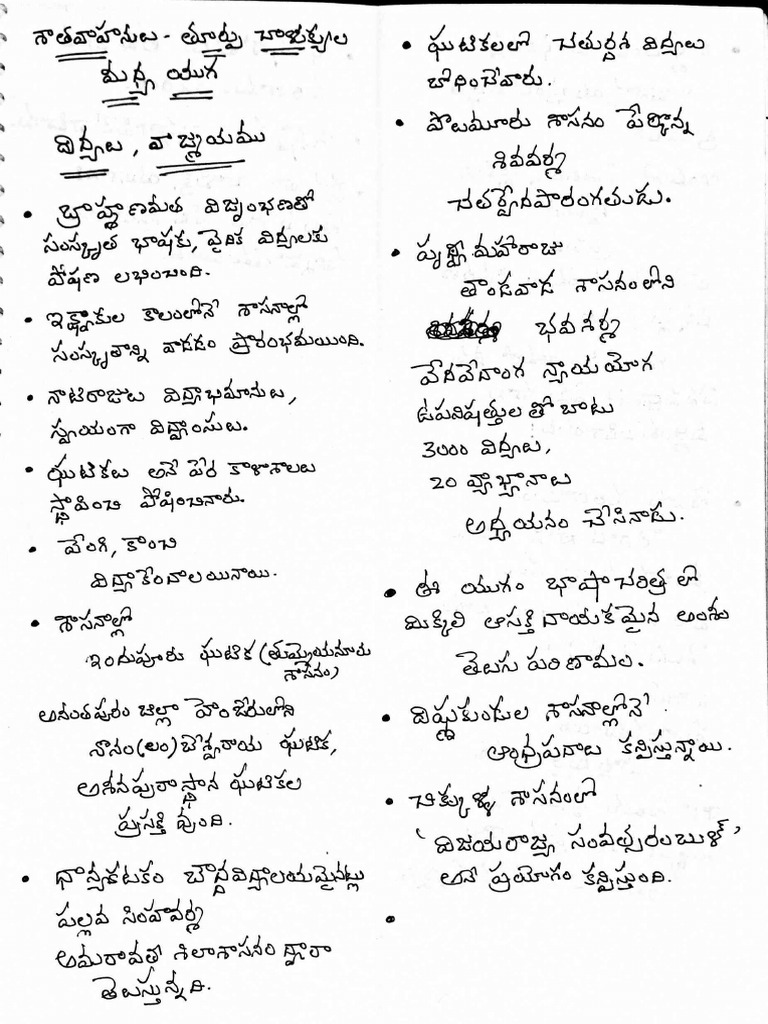 శాతవాహనులు - తూర్పు చాళుక్యుల
మధ్య యుగ
విద్యలు, వాఙ్మయము
• బ్రాహ్మణమత విజృంభణతో
సంస్కృత భాషకు, వైదిక విద్యలకు
పోషణ లభించింది.
• ఇక్ష్వాకుల కాలంలోనే శాసనాల్లో
సంస్కృతాన్ని వాడడం ప్రారంభమయింది.
• నాటిరాజులు విద్యాభిమానులు,
స్వయంగా విద్వాంసులు.
• ఘటికలు అనే పేర కళాశాలలు
స్థాపించి పోషించినారు.
• వేంగి, కాంచి
విద్యాకేంద్రాలయినాయి.
• శాసనాల్లో
ఇందుపూరు ఘటిక (తుమ్మెయనూరు
శాసనం)
అనంతపురం జిల్లా హెంజేరులోని
నానం(లం)బేశ్వరాయ ఘటిక,
అశనపురాస్థాన ఘటికల
ప్రసక్తి వుంది.
• ధాన్యకటకం బౌద్ధవిద్యాలయమైనట్లు
పల్లవ సింహవర్మ
అమరావతి శిలాశాసనం ద్వారా
తెలుస్తున్నది.
• ఘటికలలో చతుర్దశ విద్యలు
బోధించేవారు.
• పొలమూరు శాసనం పేర్కొన్న
శివవర్మ
చతుర్వేదపారంగతుడు.
• పృథ్వీమహారాజు
తాండివాడ శాసనంలోని
భవశర్మ
వేదవేదాంగ న్యాయయోగ
ఉపనిషత్తులతో బాటు
3000 విద్యలు,
20 వ్యాఖ్యానాలు
అధ్యయనం చేసినాడు.
• ఈ యుగం భాషాచరిత్రలో
మిక్కిలి ఆసక్తిదాయకమైన అంశం
తెలుగు పరిణామం.
• విష్ణుకుండుల శాసనాల్లోనే
ఆంధ్రపదాలు కన్పిస్తున్నాయి.
• చిక్కుళ్ళ శాసనంలో
'విజయరాజ్య సంవత్సరంబుళ్'
అనే ప్రయోగం కన్పిస్తుంది.
•